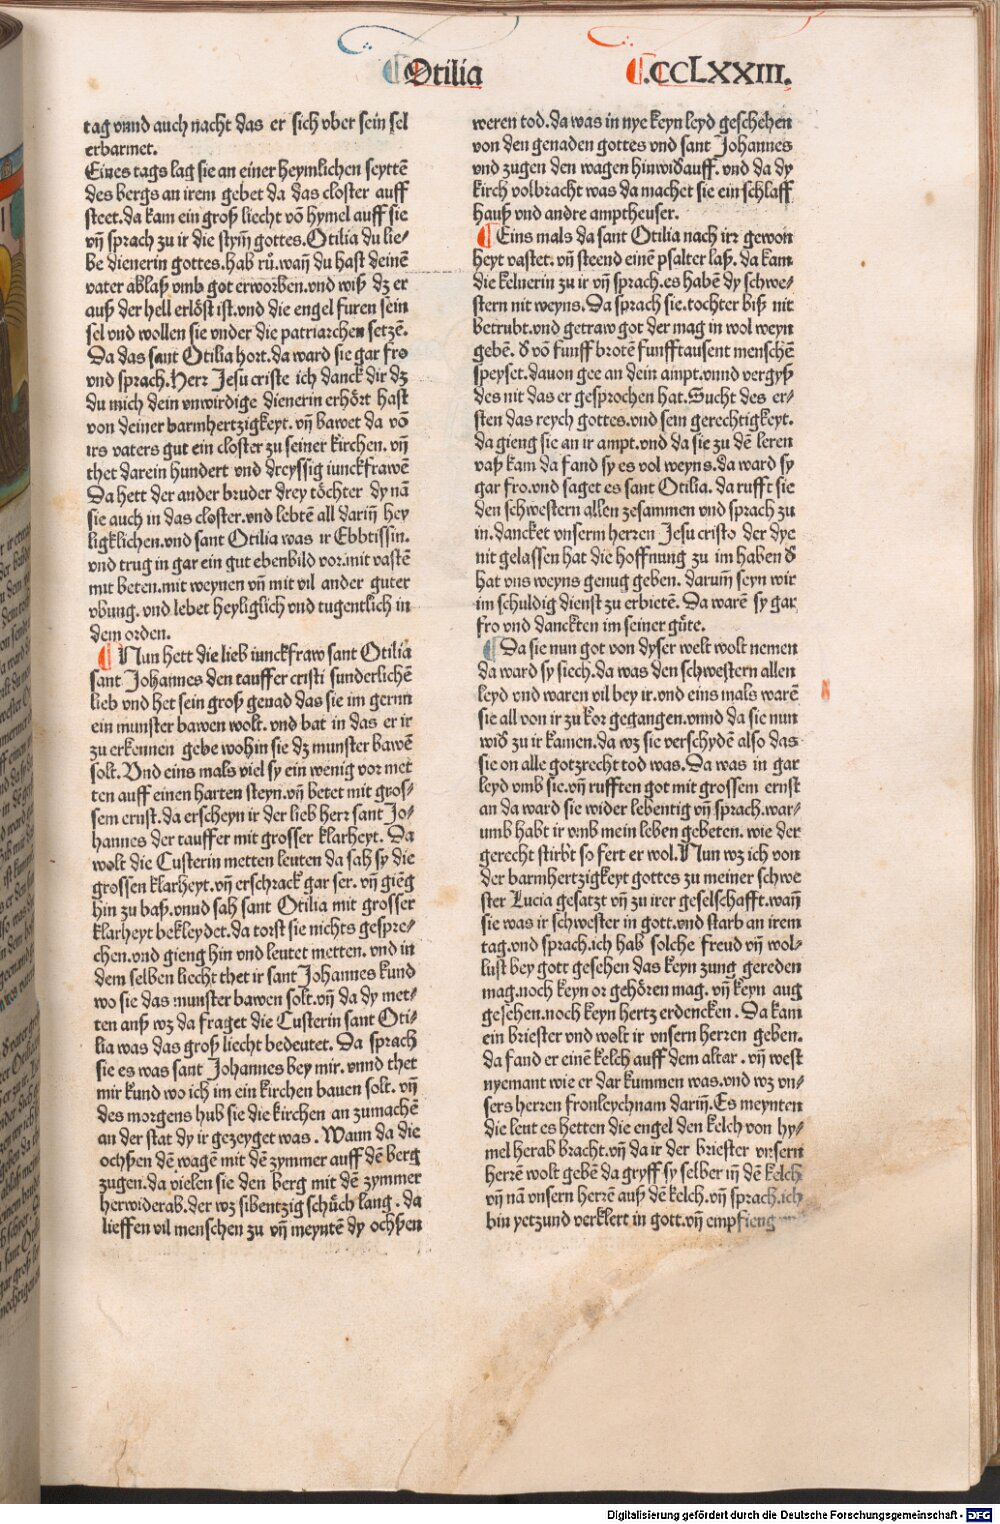 Otilia
.CCLXXIII.
tag vnnd auch nacht das er sich vber sein sel
erbarmet.
Eines tags lag sie an einer heymlichen seyttē
des bergs an irem gebet da das closter auff
steet.da kam ein groß liecht vō hymel auff sie
vn̄ sprach zu ir die stym̄ gottes.Otilia du lie⸗
be dienerin gottes.hab rů.wan̄ du hast deinē
vater ablaß vmb got erworben.vnd wiß dz er
auß der hell erlöst ist.vnd die engel furen sein
sel vnd wollen sie vnder die patriarchen setzē.
Da das sant Otilia hort.da ward sie gar fro
vnd sprach.Herr Jesu criste ich danck dir dz
du mich dein vnwirdige dienerin erhört hast
von deiner barmhertzigkeyt. vn̄ bawet da vō
irs vaters gut ein closter zu seiner kirchen. vn̄
thet darein hundert vnd dreyssig iunckfrawē
Da hett der ander bruder drey töchter dy nā
sie auch in das closter.vnd lebtē all darin̄ hey
ligklichen.vnd sant Otilia was ir Ebbtissin.
vnd trug in gar ein gut ebenbild vor.mit vastē
mit beten.mit weynen vn̄ mit vil ander guter
vbung. vnd lebet heyliglich vnd tugentlich in
dem orden.
¶ Nun hett die lieb iunckfraw sant Otilia
sant Johannes den tauffer cristi sunderlichē
lieb vnd het sein groß genad das sie im gernn
ein munster bawen wolt. vnd bat in das er ir
zu erkennen gebe wohin sie dz munster bawē
solt. Vnd eins mals viel sy ein wenig vor met
ten auff einen harten steyn.vn̄ betet mit gros⸗
sem ernst.da erscheyn ir der lieb herr sant Jo⸗
hannes der tauffer mit grosser klarheyt. Da
wolt die Custerin metten leuten da sah sy die
grossen klarheyt.vn̄ erschrack gar ser. vn̄ giēg
hin zu baß.vnnd sah sant Otilia mit grosser
klarheyt bekleydet.da torst sie nichts gespre⸗
chen.vnd gieng hin vnd leutet metten. vnd in
dem selben liecht thet ir sant Johannes kund
wo sie das munster bawen solt.vn̄ da dy met⸗
ten auß wz da fraget die Custerin sant Oti⸗
lia was das groß liecht bedeutet. Da sprach
sie es was sant Johannes bey mir. vnnd thet
mir kund wo ich im ein kirchen bauen solt. vn̄
des morgens hub sie die kirchen an zumachē
an der stat dy ir gezeyget was . Wann da die
ochßen dē wagē mit dē zymmer auff dē berg
zugen.da vielen sie den berg mit dē zymmer
herwiderab.der wz sibentzig schůch lang . da
lieffen vil menschen zu vn̄ meyntē dy ochßen
weren tod.da was in nye keyn leyd geschehen
von den genaden gottes vnd sant Johannes
vnd zugen den wagen hinwiđauff. vnd da dy
kirch volbracht was da machet sie ein schlaff
hauß vnd andre amptheuser.
¶ Eins mals da sant Otilia nach irr gewon
heyt vastet. vn̄ steend einē psalter laß. da kam
die kelnerin zu ir vn̄ sprach.es habē dy schwe⸗
stern nit weyns. Da sprach sie.tochter biß nit
betrubt.vnd getraw got der mag in wol weyn
gebē. đ vō funff brotē funfftausent menschē
speyset.dauon gee an dein ampt.vnnd vergyß
des nit das er gesprochen hat.Sucht des er⸗
sten das reych gottes.vnd sein gerechtigkeyt.
da gieng sie an ir ampt.vnd da sie zu dē leren
vaß kam da fand sy es vol weyns.da ward sy
gar fro.vnd saget es sant Otilia. da rufft sie
den schwestern allen zesammen vnd sprach zu
in.dancket vnserm herren Jesu cristo der dye
nit gelassen hat die hoffnung zu im haben đ
hat vns weyns genug geben. darum̄ seyn wir
im schuldig dienst zu erbietē. Da warē sy gar
fro vnd danckten im seiner gůte.
¶ Da sie nun got von dyser welt wolt nemen
da ward sy siech.da was den schwestern allen
leyd vnd waren vil bey ir.vnd eins mals warē
sie all von ir zu kor gegangen.vnnd da sie nun
wiđ zu ir kamen.da wz sie verschydē also das
sie on alle gotzrecht tod was. Da was in gar
leyd vmb sie.vn̄ rufften got mit grossem ernst
an da ward sie wider lebentig vn̄ sprach.war⸗
umb habt ir vmb mein leben gebeten. wie der
gerecht stirbt so fert er wol. Nun wz ich von
der barmhertzigkeyt gottes zu meiner schwe
ster Lucia gesatzt vn̄ zu irer geselschafft.wan̄
sie was ir schwester in gott.vnd starb an irem
tag.vnd sprach.ich hab solche freud vn̄ wol⸗
lust bey gott gesehen das keyn zung gereden
mag.noch keyn or gehören mag. vn̄ keyn aug
gesehen.noch keyn hertz erdencken . Da kam
ein briester vnd wolt ir vnsern herren geben.
da fand er einē kelch auff dem altar . vn̄ west
nyemant wie er dar kummen was.vnd wz vn⸗
sers herren fronleychnam darin̄.Es meynten
die leut es hetten die engel den kelch von hy⸗
mel herab bracht.vn̄ da ir der briester vnsern
herrē wolt gebē da gryff sy selber in̄ dē kelch
vn̄ nā vnsern herrē auß dē kelch.vn̄ sprach.ich
bin yetzund verklert in gott.vn̄ empfieng
Digitalisierung gefördert durch die Deutsche Forschungsgemeinschaft - DFG